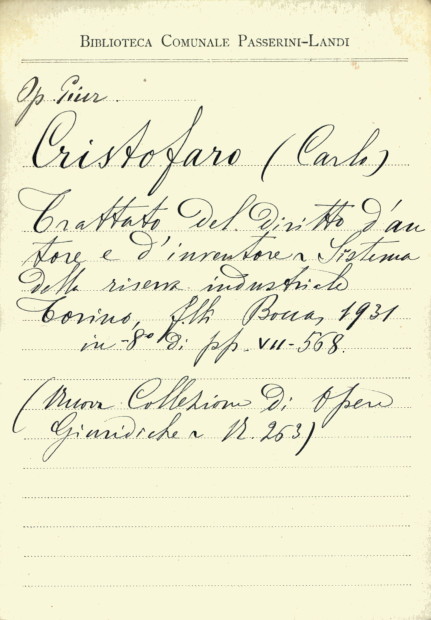 BIBLIOTECA COMUNALE PASSERINI-LANDI
Op. Giur.
Cristofaro (Carlo)
Trattato del diritto d'au
tore e d'inventore Sistema
della riserva industriale
Torino, f.lli Bocca, 1931
in-8° di pp. VII-568.
(Nuova Collezione di Opere
Giuridiche N. 263)